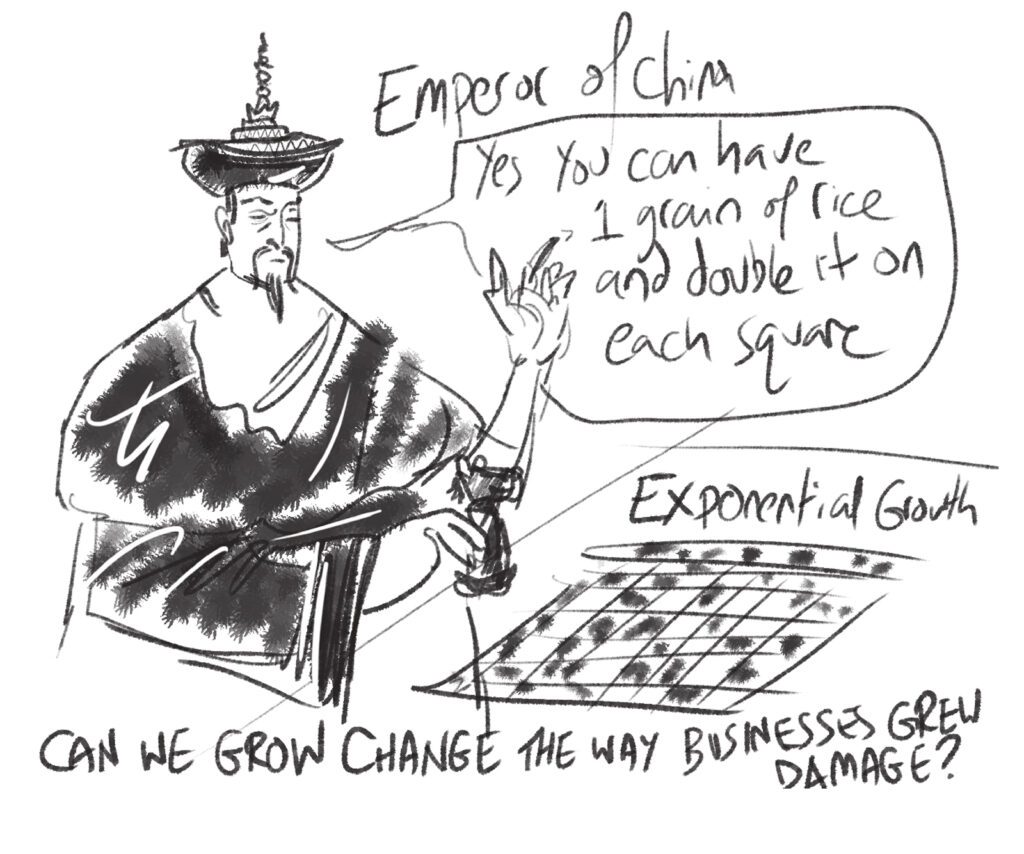 Emperor of China
Yes You can have
1 grain of rice
and double it on
each square
Exponential Growth
CAN WE GROW CHANGE THE WAY BUSINESSES GREW
DAMAGE?